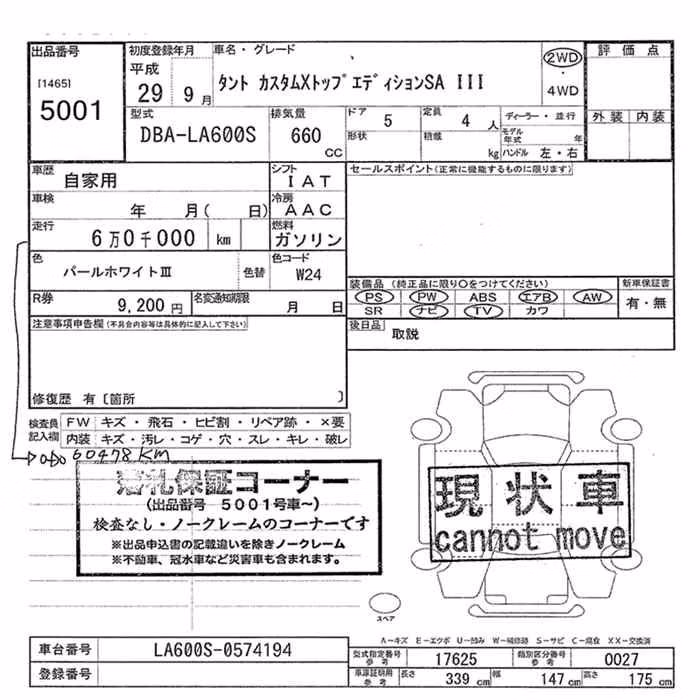 出品番号 初度登録年月 車名・グレード 2WD 評価点
[1465] 平成
5001 29 9月 タント カスタムXトップエディションSA III ・ 4WD
型式 排気量 ドア 5 定員 4 人 ディーラー・並行 外装 内装
DBA-LA600S 660 CC 形状 積載 kg モデル年式 年
ハンドル 左・右
車歴 自家用 シフト IAT セールスポイント(正常に機能するものに限ります)
車検 年 月( 日) 冷房 AAC
走行 6万0千000 km 燃料 ガソリン
色 パールホワイトIII 色替 色コード W24
装備品(純正品に限り○をつけてください) 新車保証書
R券 9,200円 名変通知期限 月 日 PS PW ABS エアB AW 有・無
SR ナビ TV カワ
注意事項申告欄(不具合内容等は具体的に記入して下さい) 後日品 取説
修復歴 有〔箇所 〕
検査員記入欄 FW キズ・飛石・ヒビ割・リペア跡・×要
内装 キズ・汚レ・コゲ・穴・スレ・キレ・破レ
60478KM
落札保証コーナー
(出品番号 5001号車~)
検査なし・ノークレームのコーナーです
※出品申込書の記載違いを除きノークレーム
※不動車、冠水車など災害車も含まれます。
現状車
cannot move
スペア
A-キズ E-エクボ U-凹み W-補修跡 S-サビ C-腐食 XX-交換済
車台番号 LA600S-0574194 型式指定番号 参考 17625 類別区分番号 参考 0027
登録番号 車庫証明用 参考 長さ 339 cm 幅 147 cm 高さ 175 cm